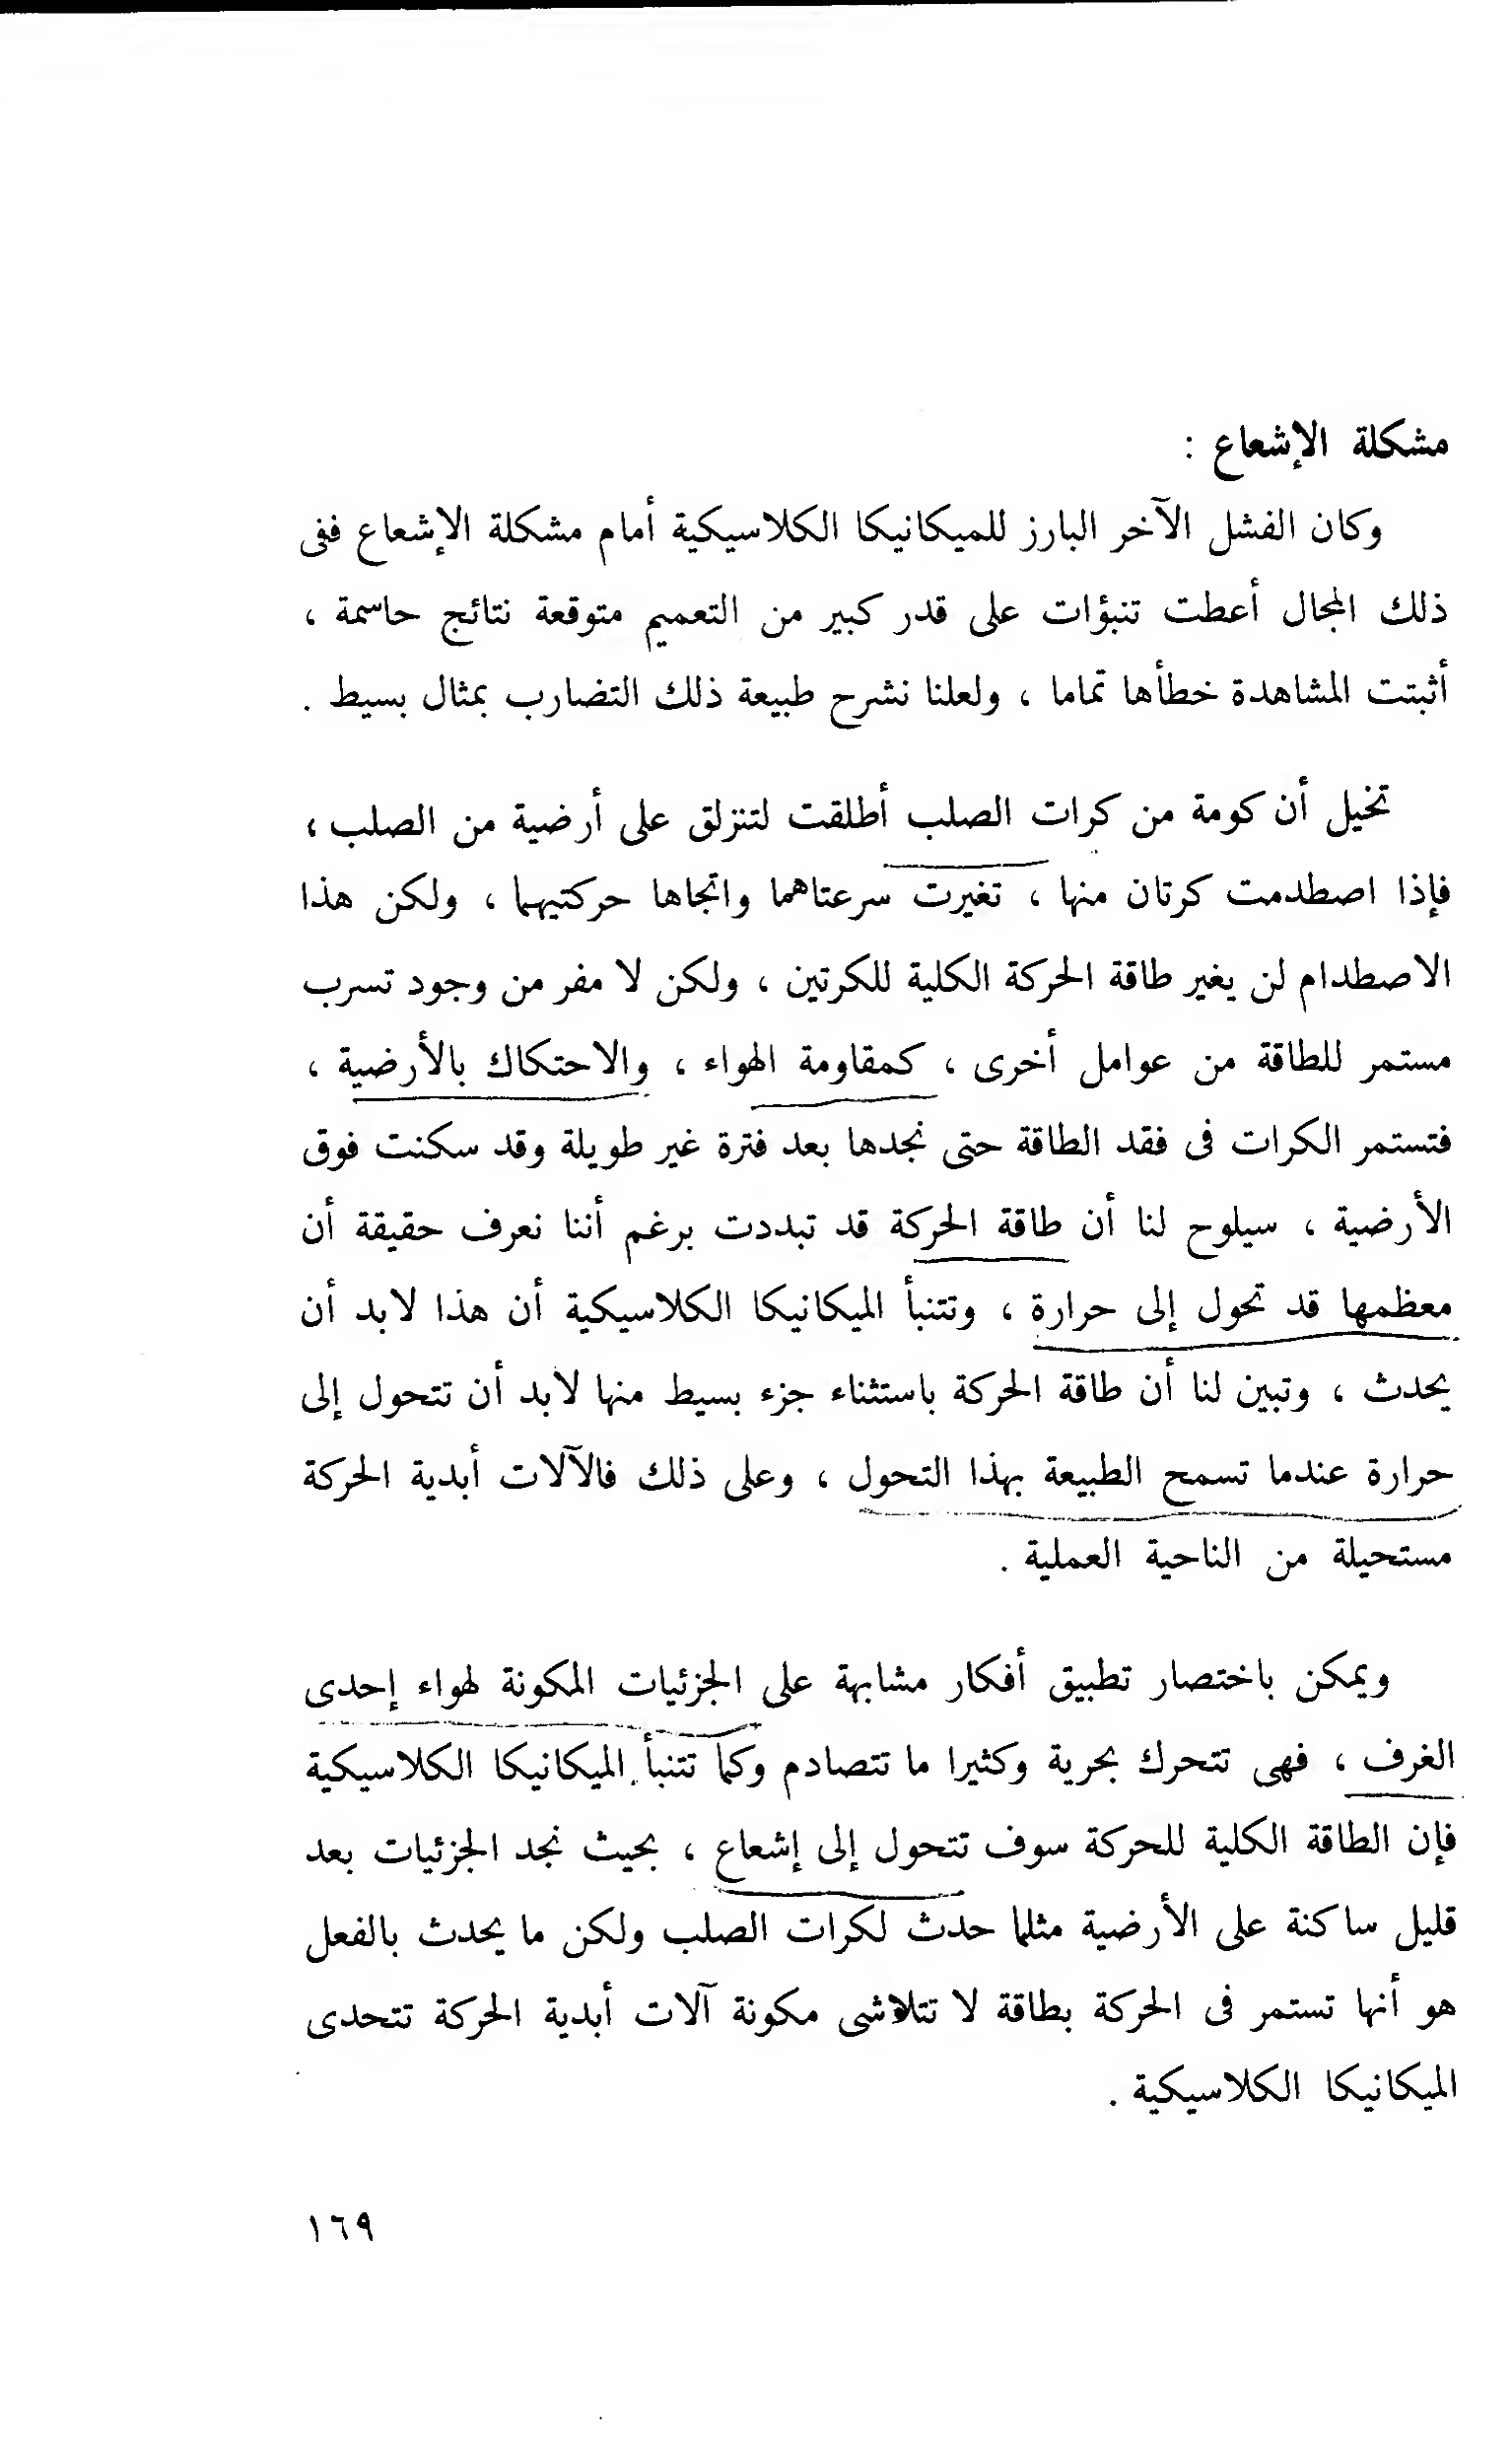 مشكلة الإشعاع :
وكان الفشل الآخر البارز للميكانيكا الكلاسيكية أمام مشكلة الإشعاع ففى
ذلك المجال أعطت تنبؤات على قدر كبير من التعميم متوقعة نتائج حاسمة ،
أثبتت المشاهدة خطأها تماما ، ولعلنا نشرح طبيعة ذلك التضارب بمثال بسيط .
تخيل أن كومة من كرات الصلب أطلقت لتنزلق على أرضية من الصلب ،
فإذا اصطدمت كرتان منها ، تغيرت سرعتاهما واتجاها حركتيهما ، ولكن هذا
الاصطدام لن يغير طاقة الحركة الكلية للكرتين ، ولكن لا مفر من وجود تسرب
مستمر للطاقة من عوامل أخرى ، كمقاومة الهواء ، والاحتكاك بالأرضية ،
فتستمر الكرات فى فقد الطاقة حتى نجدها بعد فترة غير طويلة وقد سكنت فوق
الأرضية ، سيلوح لنا أن طاقة الحركة قد تبددت برغم أننا نعرف حقيقة أن
معظمها قد تحول إلى حرارة ، وتتنبأ الميكانيكا الكلاسيكية أن هذا لابد أن
يحدث ، وتبين لنا أن طاقة الحركة باستثناء جزء بسيط منها لابد أن تتحول إلى
حرارة عندما تسمح الطبيعة بهذا التحول ، وعلى ذلك فالآلات أبدية الحركة
مستحيلة من الناحية العملية .
ويمكن باختصار تطبيق أفكار مشابهة على الجزئيات المكونة لهواء إحدى
الغرف ، فهى تتحرك بحرية وكثيرا ما تتصادم وكما تتنبأ الميكانيكا الكلاسيكية
فإن الطاقة الكلية للحركة سوف تتحول إلى إشعاع ، بحيث نجد الجزئيات بعد
قليل ساكنة على الأرضية مثلما حدث لكرات الصلب ولكن ما يحدث بالفعل
هو أنها تستمر فى الحركة بطاقة لا تتلاشى مكونة آلات أبدية الحركة تتحدى
الميكانيكا الكلاسيكية .
١٦٩